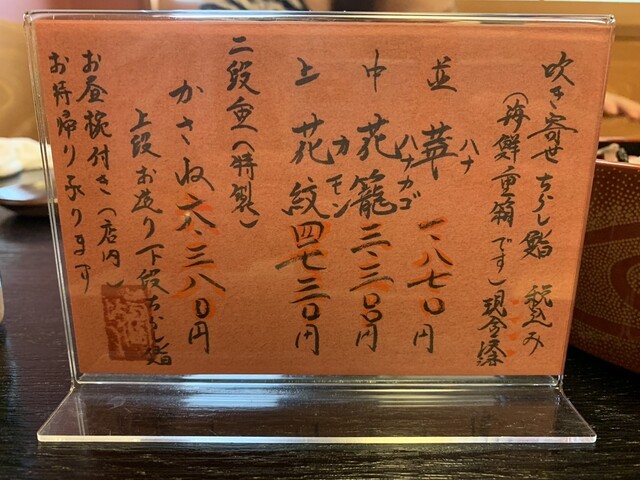 吹き寄せちらし鮨 税込み
(海鮮重箱です)現金決済
並 華 ハナ 一、八七〇円
中 花籠 ハナカゴ 三、三〇〇円
上 花紋 カモン 四七三〇円
二段重(特製)
かさね 六、三八〇円
上段お造り下段ちらし鮨
お昼椀付き(店内)
お持帰り承ります